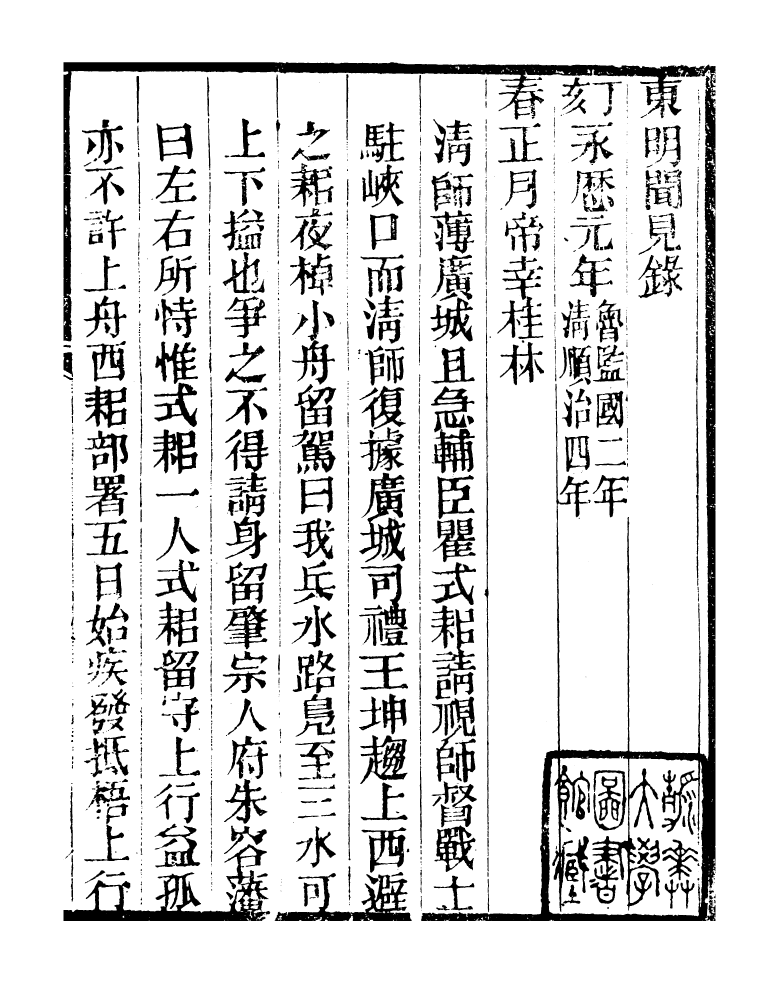 東明聞見錄
丁亥永曆元年魯監國二年
清順治四年
春正月帝幸桂林
清師薄廣城且急輔臣瞿式耜請視師督戰士
駐峽口而清師復據廣城司禮王坤趨上西避
之耜夜棹小舟留駕曰我兵水路島至三水可
上下搤也爭之不得請身留肇宗人府朱容藩
曰左右所恃惟式耜一人式耜留守上行益孤
亦不許上舟西耜部署五日始疾發抵梧上行
燕京大學圖書館藏